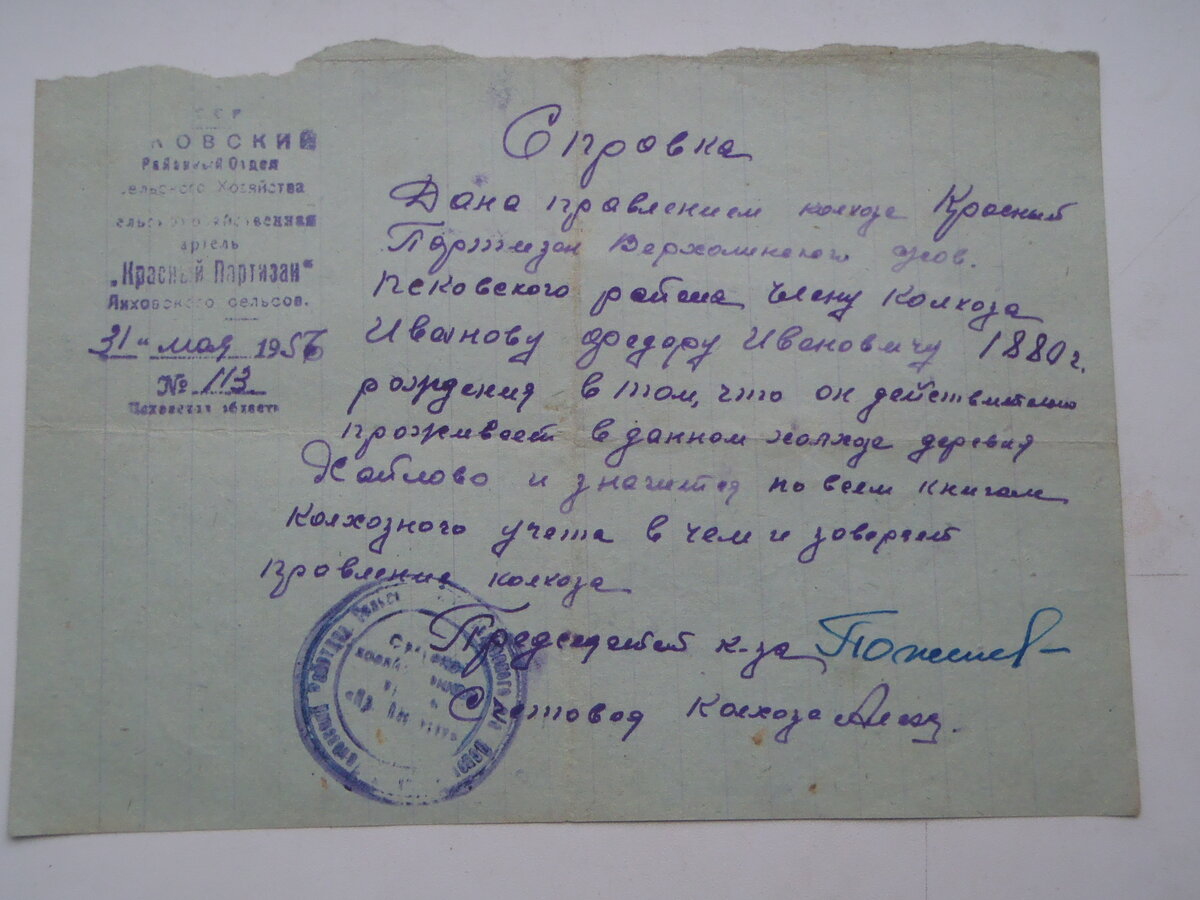 ССР
КОВСКИЙ
Районный Отдел
сельского Хозяйства
артель
„Красный Партизан“
Ляховского сельсов.
31 " мая 1956
№ 113
Псковская область
Справка
Дана правлением колхоза Красный
Партизан Верхолинского с/сов.
Псковского района Члену Колхоза
Иванову Федору Ивановичу 1880 г.
рождения в том, что он действительно
проживает в данном колхозе деревня
Хайлово и значится по всем книгам
Колхозного учета в чем и заверяет
правление колхоза
Председатель к-за
Счетовод Колхоза